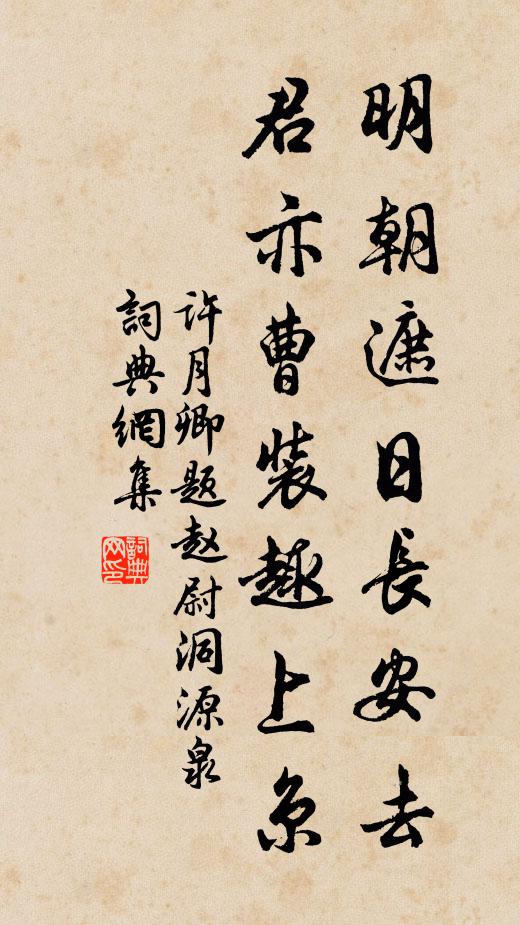 明朝遮日長安去
君亦曹裝趣上京
许月卿题赵尉洞源泉
詞典網集
詞典
网印